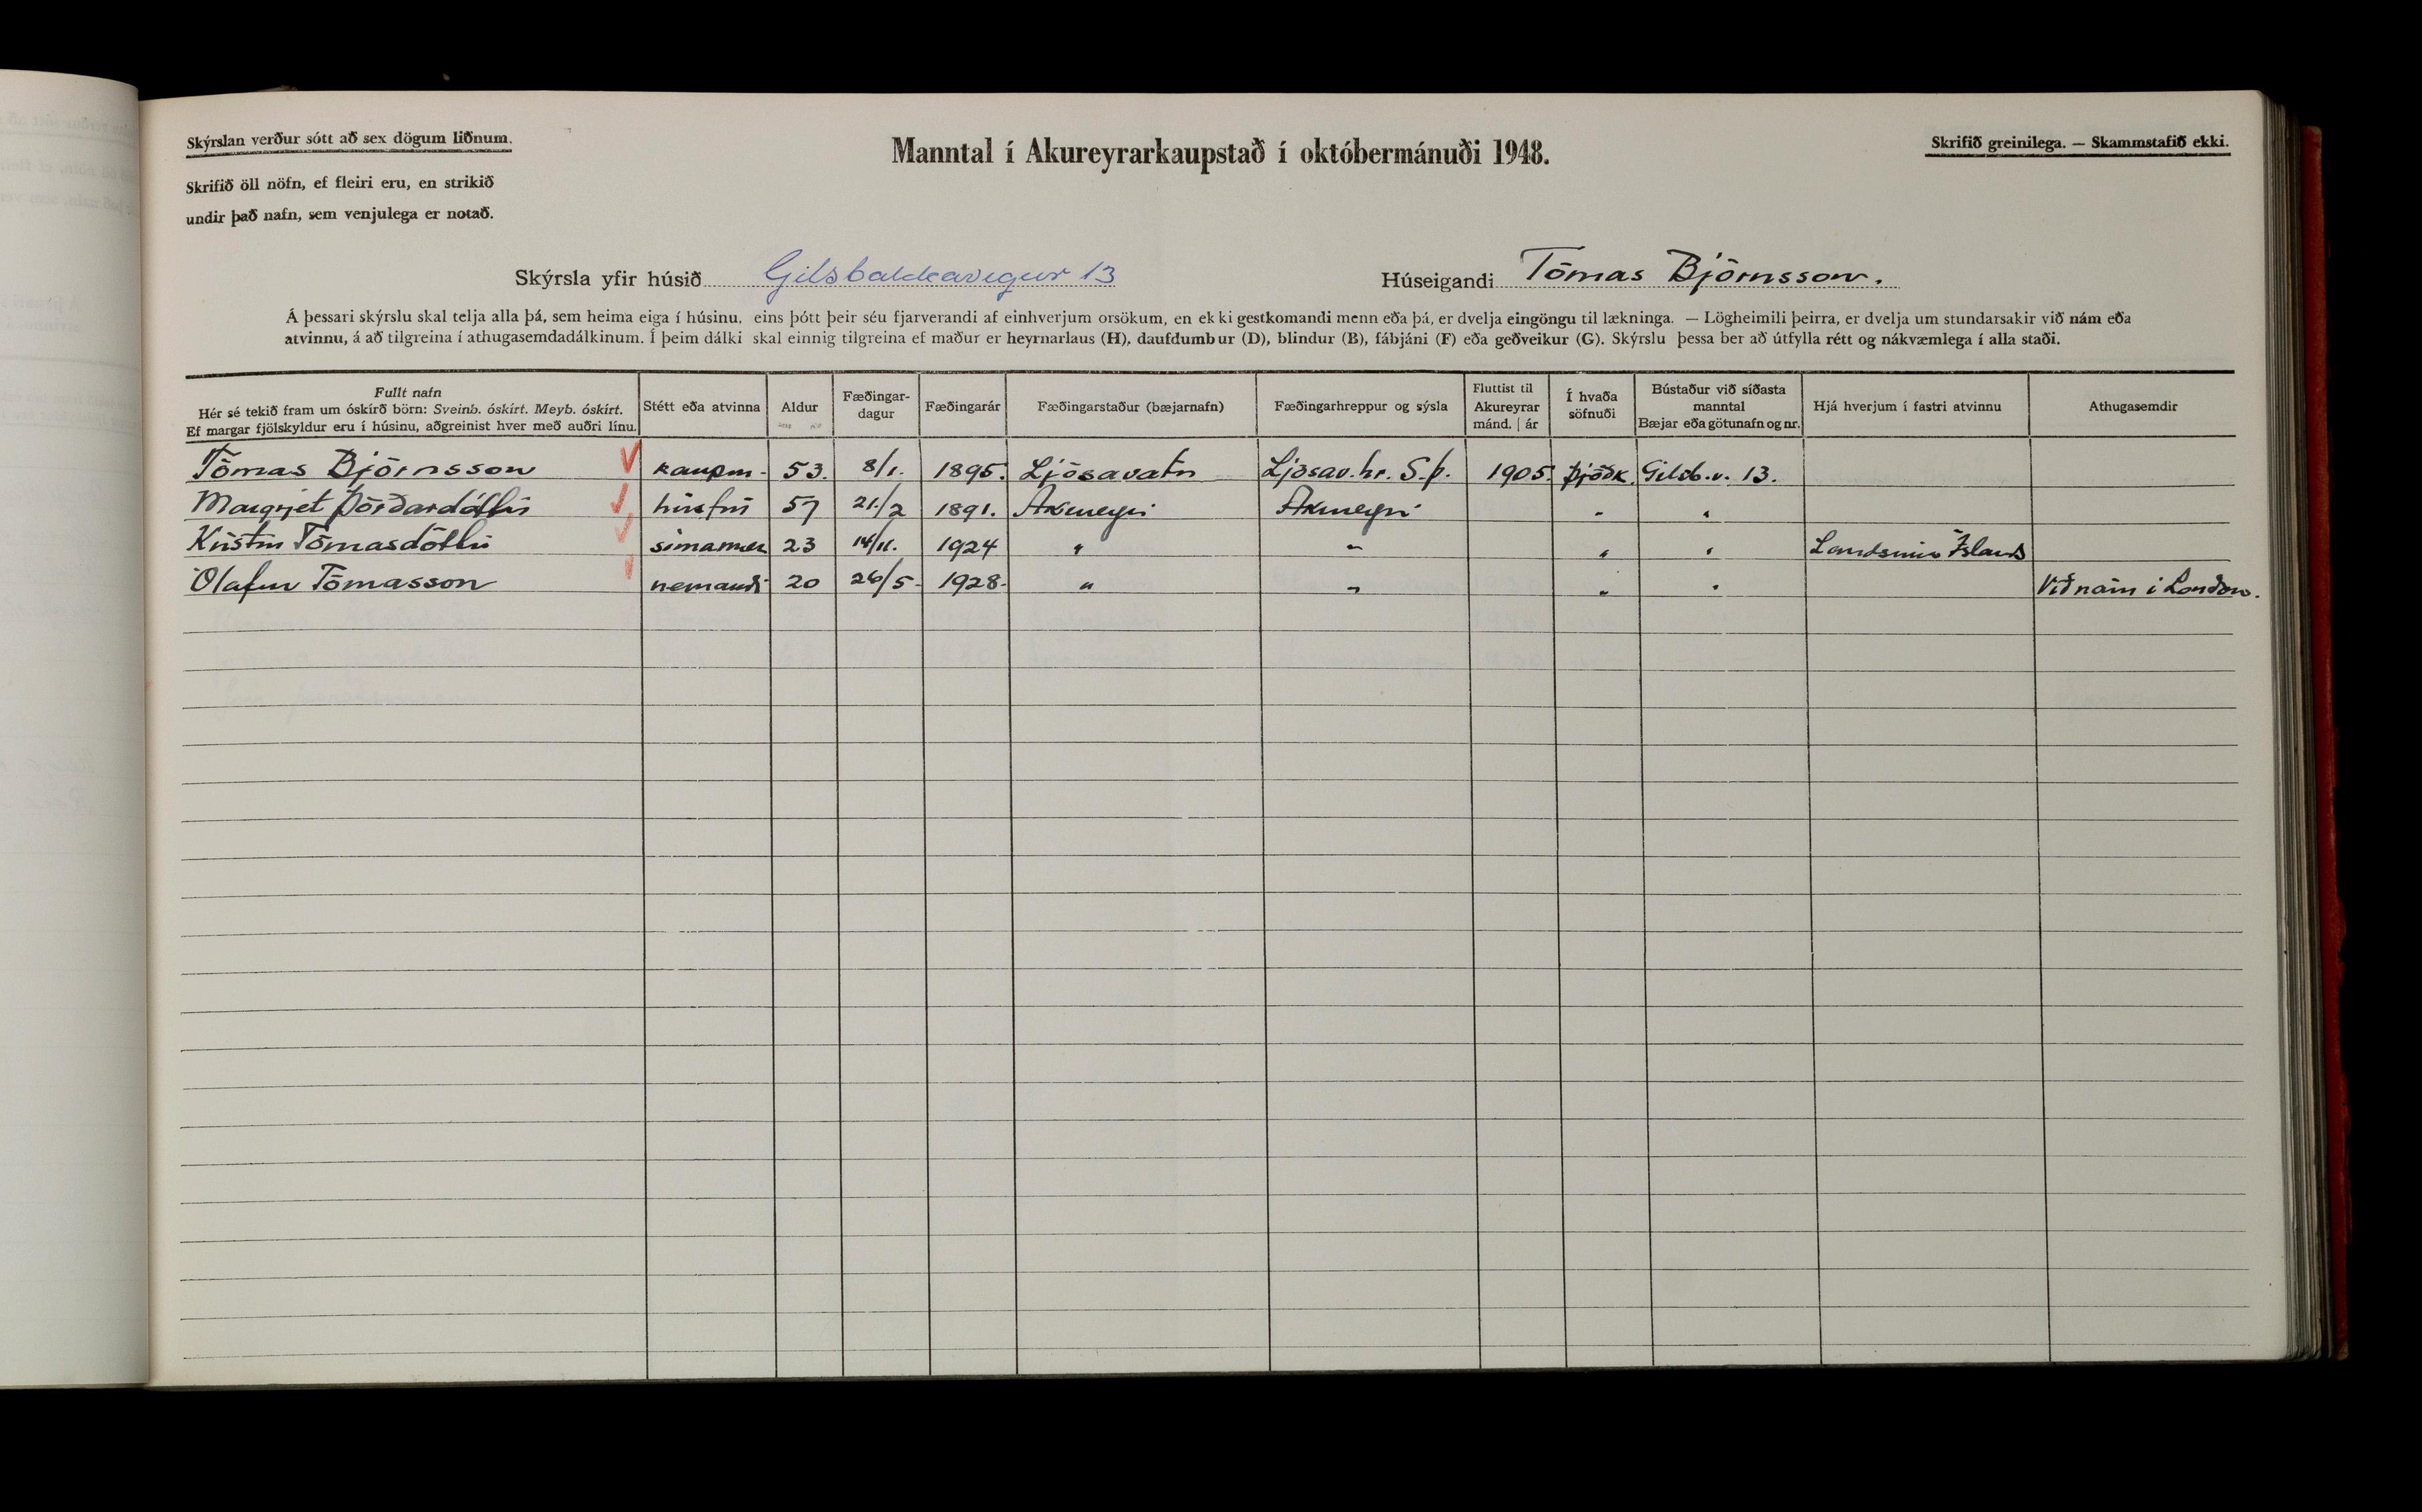 Skýrslan verður sótt að sex dögum liðnum.
Skrifið öll nöfn, ef fleiri eru, en strikið
undir það nafn, sem venjulega er notað.
Manntal í Akureyrarkaupstað í októbermánuði 1948.
Skrifið greinilega. — Skammstafið ekki.
Skýrsla yfir húsið Gilsbakkavegur 13 Húseigandi Tómas Björnsson.
Á þessari skýrslu skal telja alla þá, sem heima eiga í húsinu, eins þótt þeir séu fjarverandi af einhverjum orsökum, en ekki gestkomandi menn eða þá, er dvelja eingöngu til lækninga. — Lögheimili þeirra, er dvelja um stundarsakir við nám eða
atvinnu, á að tilgreina í athugasemdadálkinum. Í þeim dálki skal einnig tilgreina ef maður er heyrnarlaus (H), daufdumbur (D), blindur (B), fábjáni (F) eða geðveikur (G). Skýrslu þessa ber að útfylla rétt og nákvæmlega í alla staði.
Fullt nafn
Hér sé tekið fram um óskírð börn: Sveinb. óskírt. Meyb. óskírt.
Ef margar fjölskyldur eru í húsinu, aðgreinist hver með auðri línu.
Stétt eða atvinna
Aldur
Fæðingar-
dagur
Fæðingarár
Fæðingarstaður (bæjarnafn)
Fæðingarhreppur og sýsla
Fluttist til
Akureyrar
mánd. | ár
Í hvaða
söfnuði
Bústaður við síðasta
manntal
Bæjar eða götunafn og nr.
Hjá hverjum í fastri atvinnu
Athugasemdir
Tómas Björnsson kaupm. 53. 8/1. 1895. Ljósavatn Ljósav.hr. S.þ. 1905. þjóðk. Gilsb.v. 13.
Margrjet Þórðardóttir húsfrú 57 21/2 1891. Akureyri Akureyri " "
Kristín Tómasdóttir símamær 23 14/11. 1924 " " " " Landsími Íslands
Ólafur Tómasson nemandi 20 26/5. 1928. " " " " Við nám í London.